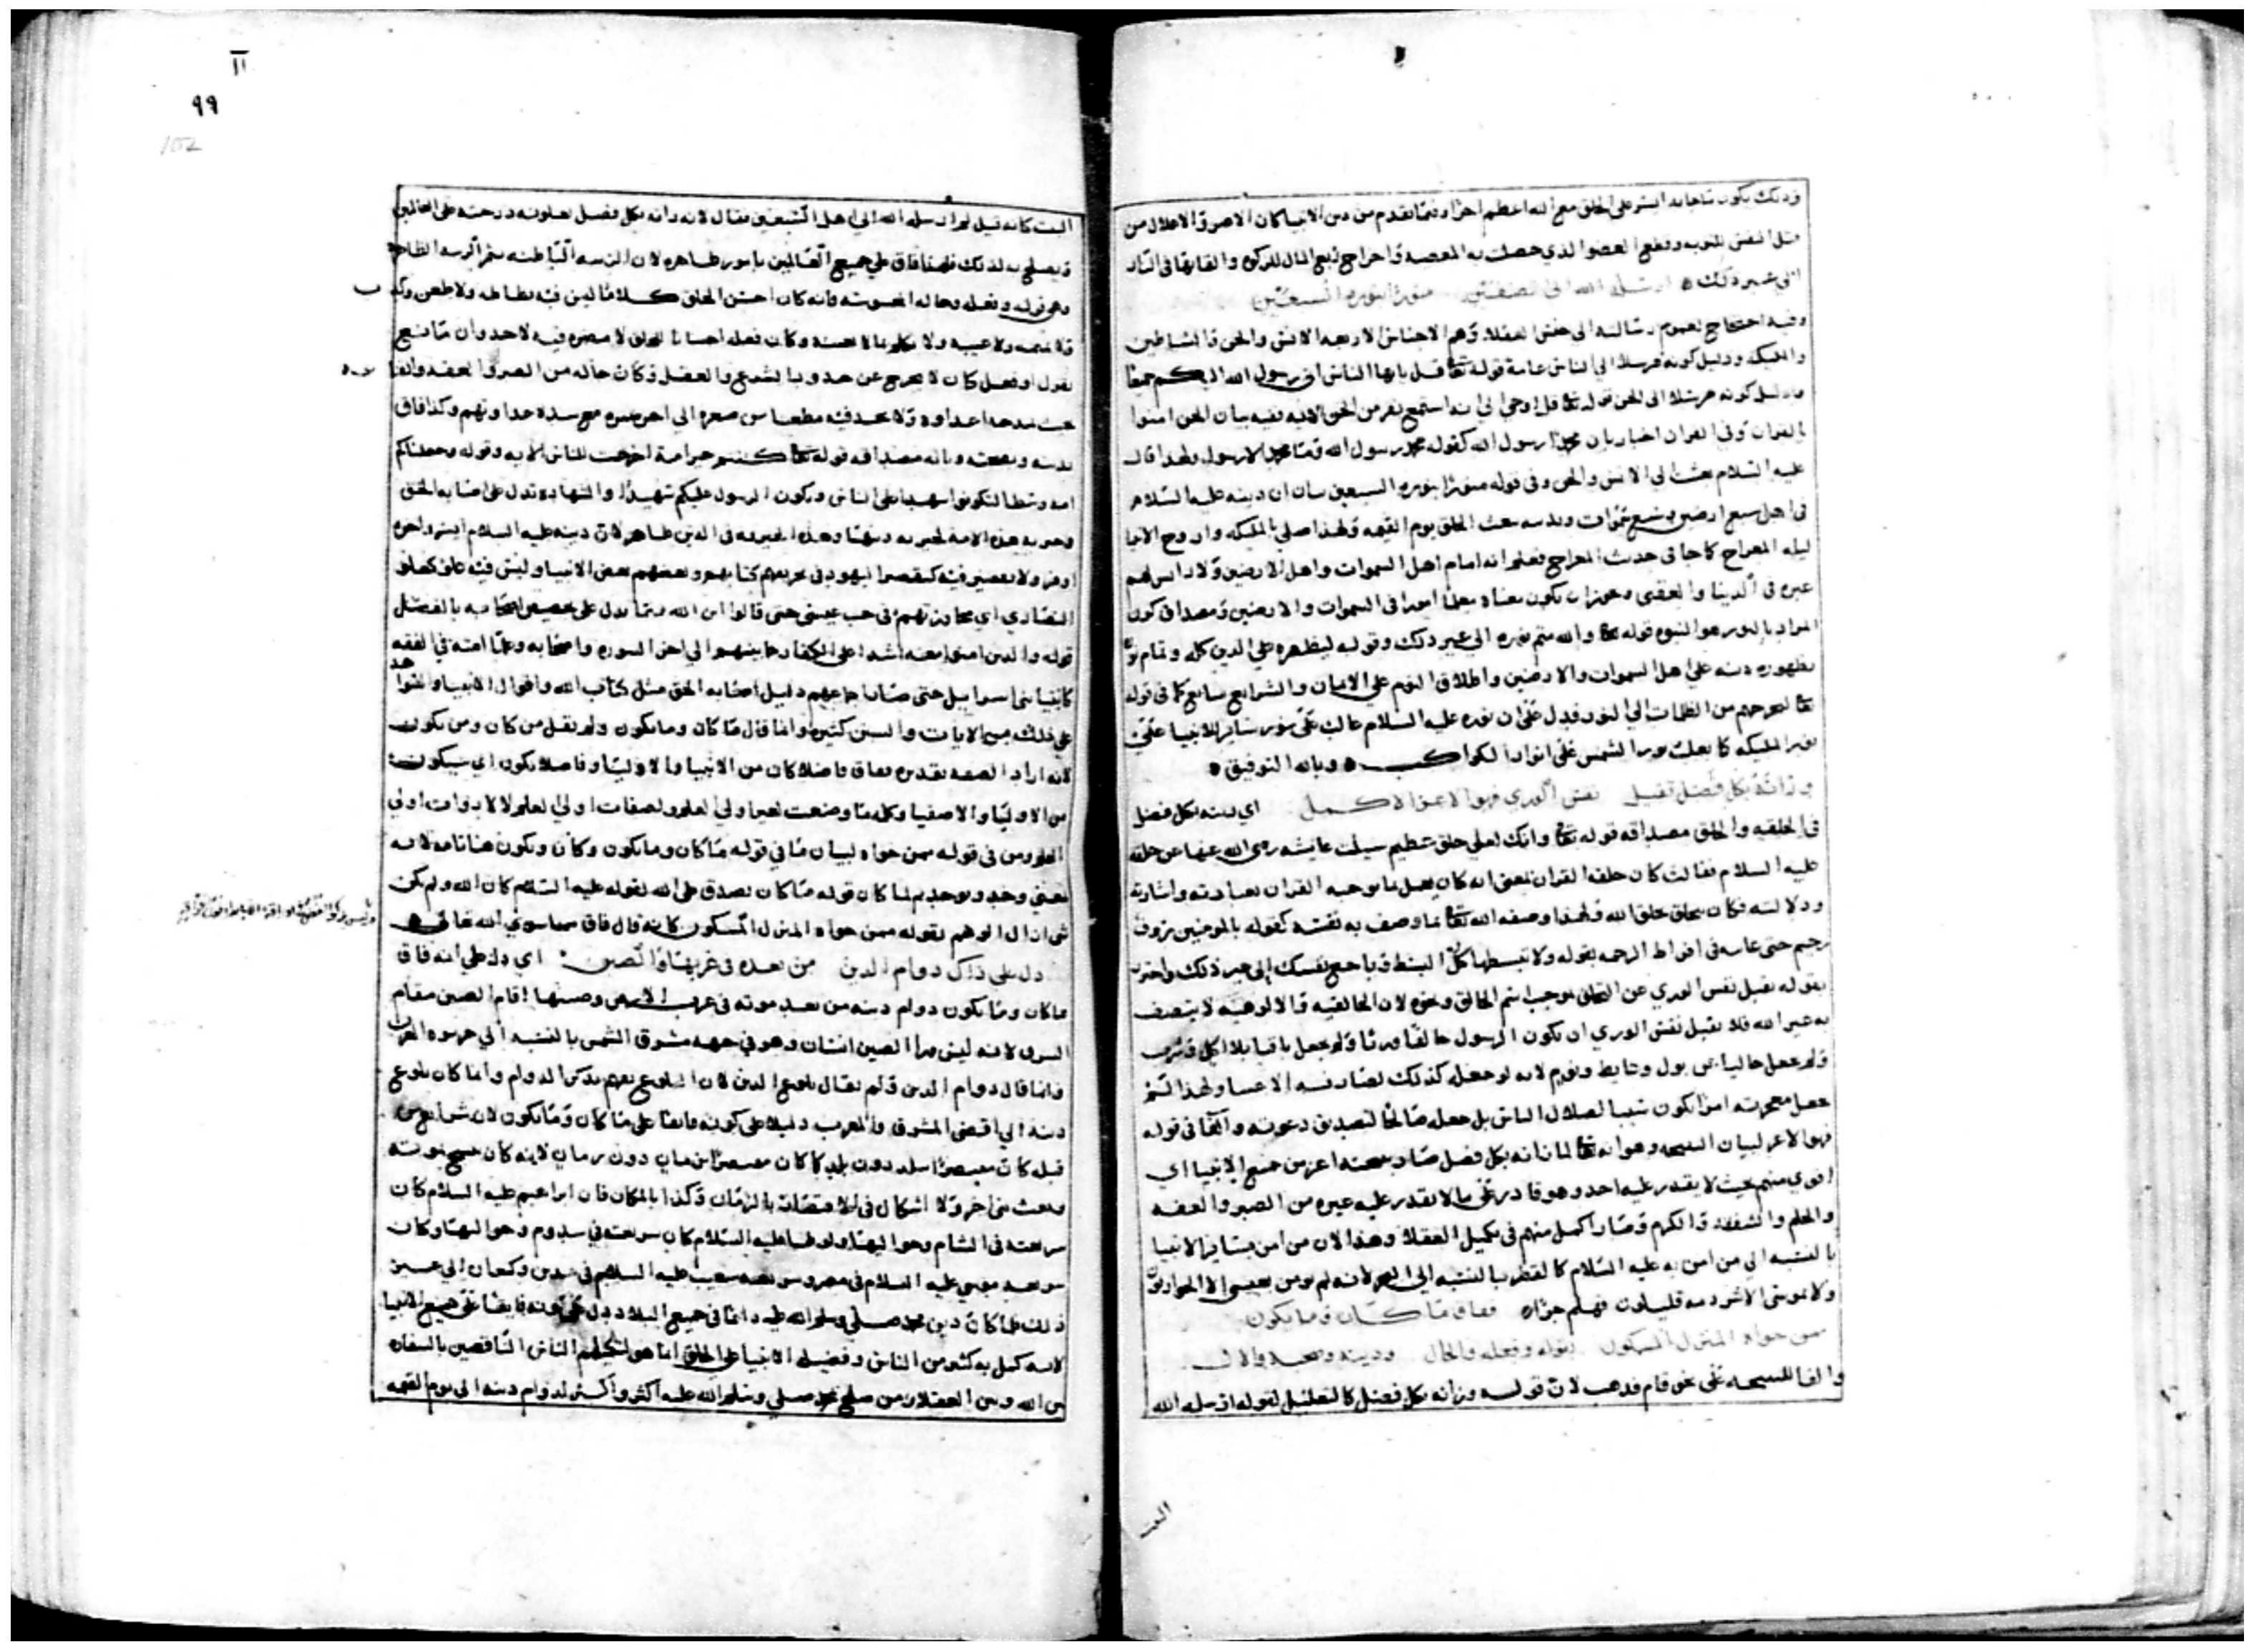 وذلك يكون ما جاء به ايسر على الخلق مع انه اعظم اجرا وفيما تقدم من دين الانبيا كان الاصر والاغلال من
مثل النفس للتوبه وقطع العضو الذي حصلت به المعصيه واخراج ربع المال للزكوه والقايها في النار
الى غير ذلك ارسله الله الى الصنفين منورا بنوره السبعين
وفيه احتجاج لعموم رسالته الى جنس العقلا وهم الاجناس الاربعه الانس والجن والشياطين
والمليكه ودليل كونه مرسلا الى الناس عامة قوله تعا قل يايها الناس اني رسول الله اليكم جميعا
ودليل كونه مرسلا الى الجن قوله تعا قل اوحي الي انه استمع نفر من الجن الايه ففيه بيان الجن امنوا
بالقران وفي القران اخبار بان محمدا رسول الله كقوله محمد رسول الله وما محمد الا رسول ولهذا قال
عليه السلام بعثت الى الانس والجن وفي قوله منورا بنوره السبعين بيان ان دينه عليه السلام
في اهل سبع ارضين وسبع سموات وبدينه يبعث الخلق يوم القيمه ولهذا صلى بالمليكه وارواح الانبيا
ليله المعراج كما جا في حديث المعراج فعلم انه امام اهل السموات واهل الارضين ولا دين لهم
غيره في الدنيا والعقبى ويجوز ان يكون معناه معلما اميرا في السموات والارضين ومصداق كون
المراد بالنور هو النبوه قوله تعا والله متم نوره الى غير ذلك وقوله ليظهره على الدين كله وتمام نوره
بظهوره دينه على اهل السموات والارضين واطلاق النور على الايمان والشرايع سايغ كما في قوله
تعا ليخرجهم من الظلمات الى النور فدل على ان نوره عليه السلام غالب على نور ساير الانبيا على
نور المليكه كما يغلب نور الشمس على انوار الكواكب وبالله التوفيق
وزانه بكل فضل تقبل نفس الورى فهو الاعز الاكمل اي زينه بكل فضل
في الخلقه والخلق مصداقه قوله تعا وانك لعلى خلق عظيم سيلت عايشه رضي الله عنها عن خلقه
عليه السلام فقالت كان خلقه القران يعني انه كان يعمل بما يوجبه القران بعبارته واشارته
ودلالته فكان يتخلق بخلق الله ولهذا وصفه الله تعا بما وصف به نفسه كقوله بالمومنين رووف
رحيم حتى عاتبه في افراط الرحمه بقوله ولا تبسطها كل البسط وباخع نفسك الى غير ذلك واحترز
بقوله تقبل نفس الورى عن التخلق بموجب اسم الخالق ونحوه لان الخالقيه والالوهيه لا يتصف
به غير الله فلا تقبل نفس الورى ان يكون الرسول خالقا وربا ولم يجعل باقيا بلا اكل وشرب
ولم يجعل خاليا عن بول وغايط ونوم لانه لو جعله كذلك لصار فتنه الاغبيا ولهذا لم
يجعل معجزته امرا يكون سببا لضلال الناس بل جعله صالحا لتصديق دعوته والفا في قوله
فهو الاعز لبيان النتيجه وهو انه تعا لما زانه بكل فضل صار بنتيجته اعز من جميع الانبيا اي
اقوى منهم بحيث لا يقدر عليه احد وهو قادر على ما لا يقدر عليه غيره من الصبر والعفه
والحلم والشفقه والكرم وصار اكمل منهم في تكميل العقلا وهذا لان من امن بساير الانبيا
بالنسبه الى من امن به عليه السلام كالقطر بالنسبه الى البحر لانه لم يومن بعيسى الا الحواريون
ولا بموسى الا شرذمه قليلون فهلم جرا ففاق ما كان وما يكون
ممن حواه المنزل المسكون بقوله وفعله والحال ودينه وصحبه والال
والفا للنتيجه على نحو قام فذهب لان قوله وزانه بكل فضل كالتعليل لقوله ارسله الله
البيت
II
٩٩
102
البيت كانه قيل لم ارسله الله الى اهل السبعين فقال لانه زانه بكل فضل يعلو به درجته على العالمين
ويصلح به لذلك فلهذا فاق على جميع العالمين بامور ظاهره لان الزينه الباطنه ثمر الزينه الظاهره
وهي قوله وفعله وحاله المحسوسه فانه كان احسن الخلق كلاما ليس فيه فظاظه ولا طعن وكذب
ولا نميمه ولا غيبه ولا تكلم بما لا يحسنه وكان فعله احسانا للخلق لا مضره فيه لاحد وان ما نفع
بقول او فعل كان لا يخرج عن حدود الشرع والعقل وكان حاله من الصبر والعفه والوفا
بحيث مدحه اعداوه ولا يجد فيه مطعنا من صغره الى اخر عمره مع شده عداوتهم وكذا فاق
بدينه وبصحبته وباله مصداقه قوله تعا كنتم خير امة اخرجت للناس الايه وقوله وجعلناكم
امه وسطا لتكونوا شهدا على الناس ويكون الرسول عليكم شهيدا والشهاده تدل على اصابه الحق
وخيريه هذه الامه بخيريه دينها وهذه الخيريه في الدين ظاهر لان دينه عليه السلام ايسر واجره
اوفر ولا تقصير فيه كتقصير اليهود في تحريفهم كتابهم وبغضهم بعض الانبيا وليس فيه غلو كغلو
النصارى اي مجاوزتهم في حب عيسى حتى قالوا ابن الله ومما يدل على تخصيص اصحابه بالفضل
قوله والذين امنوا معه اشدا على الكفار رحما بينهم الى اخر السوره واصحابه وعلما امته في الفقه
كانبيا بنى اسراييل حتى صار اجماعهم دليل اصابه الحق مثل كتاب الله واقوال الانبيا والشواهد
على ذلك من الايات والسنن كثيره وانما قال ما كان وما يكون ولم يقل من كان ومن يكون
لانه اراد الصفه تقديره ففاق فاضلا كان من الانبيا والاوليا وفاضلا يكون اي سيكون
من الاوليا والاصفيا وكلمه ما وضعت لغير اولي العلم ولصفات اولي العلم لا لذوات اولي
العلم ومن في قوله ممن حواه لبيان ما في قوله ما كان وما يكون وكان ويكون هنا تامه لانه
بمعنى وجد ويوجد لما كان قوله ما كان يصدق على الله لقوله عليه السلام كان الله ولم يكن
شي ازال الوهم بقوله ممن حواه المنزل المسكون كانه قال فاق مما سوى الله تعالى
دل على ذاك دوام الدين من بعده في غربها والصين اي دل على انه فاق
ما كان وما يكون دوام دينه من بعد موته في غرب الارض وصينها اقام الصين مقام
الشرق لانه ليس ورا الصين انسان وهو في جهه مشرق الشمس بالنسبه الى جزيره العرب
وانما قال دوام الدين ولم يقل بلوغ الدين لان البلوغ يفهم بذكر الدوام وانما كان بلوغ
دينه الى اقصى المشرق والمغرب دليلا على كونه فايقا على ما كان وما يكون لان شرايع من
قبله كان مختصرا ببلد دون بلد كما كان مختصرا بزمان دون زمان لانه كان ينسخ بموته
وبعث نبي اخر ولا اشكال في الاختصاص بالزمان وكذا بالمكان فان ابراهيم عليه السلام كان
شريعته في الشام وحواليها ولوطا عليه السلام كان شريعته في سدوم وحواليها وكان
شريعه موسى عليه السلام في مصر وشريعه شعيب عليه السلام في مدين وكنعان الى غير
ذلك فلما كان دين محمد صلى وسلم الله عليه دايما في جميع البلاد دل على كونه فايقا على جميع الانبيا
لانه كمل به كثير من الناس وفضيله الانبيا على الخلق انما هو لتكميلهم الناس الناقصين بالسفاره
بين الله وبين العقلا ومن صلح بمحمد صلى وسلم الله عليه اكثر واكثر لدوام دينه الى يوم القيمه